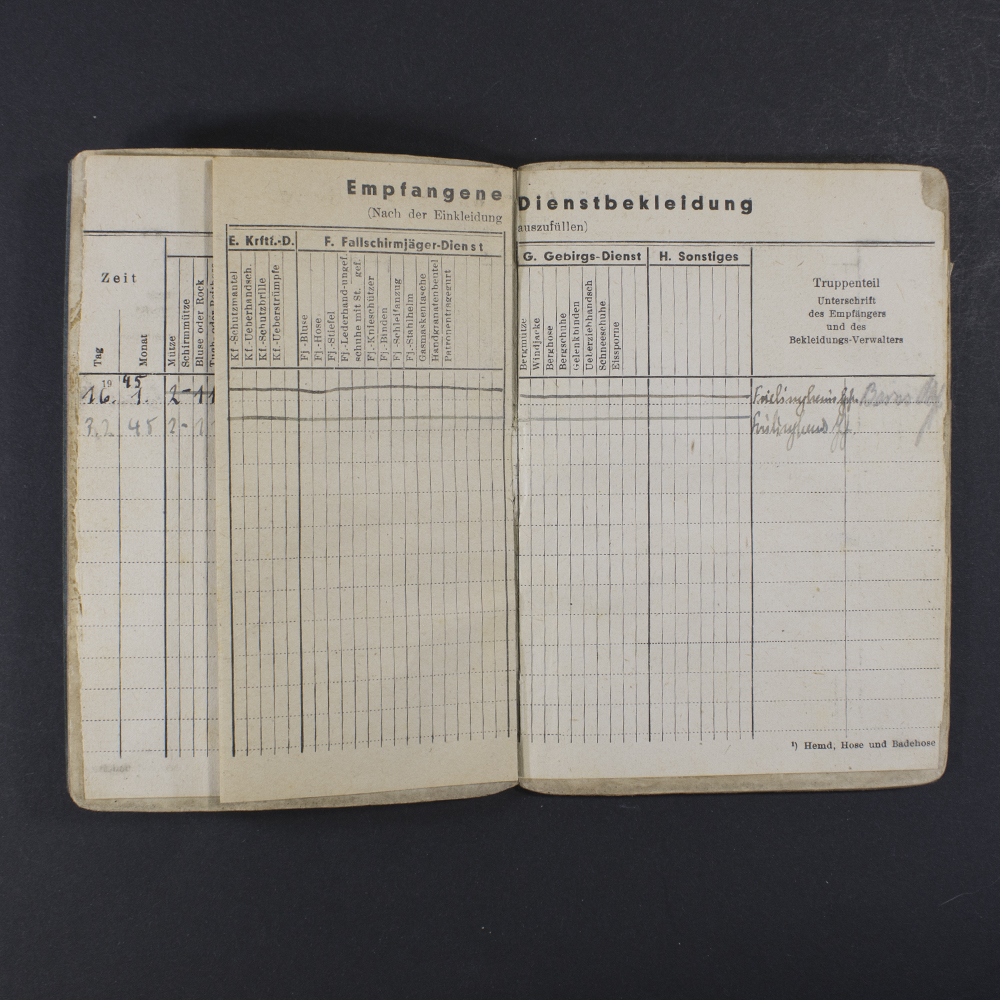 Empfangene Dienstbekleidung
(Nach der Einkleidung auszufüllen)
Zeit
Tag
Monat
Mütze
Schirmmütze
Bluse oder Rock
E. Krftf.-D.
Kf.-Schutzmantel
Kf.-Ueberhandsch.
Kf.-Schutzbrille
Kf.-Ueberstrümpfe
F. Fallschirmjäger-Dienst
Fj.-Bluse
Fj.-Hose
Fj.-Stiefel
Fj.-Lederhand-ungef.
schuhe mit St. gef.
Fj.-Knieschützer
Fj.-Binden
Fj.-Schleifanzug
Fj.-Stahlhelm
Gasmaskentasche
Handgranatenbeutel
Patronentragegurt
G. Gebirgs-Dienst
Bergmütze
Windjacke
Berghose
Bergschuhe
Gelenkbinden
Ueberziehhandsch
Schneeschuhe
Eissporne
H. Sonstiges
Truppenteil
Unterschrift
des Empfängers
und des
Bekleidungs-Verwalters
19 45
16. 1. 2 - 1 1
3.2 45 2 - 1
¹) Hemd, Hose und Badehose